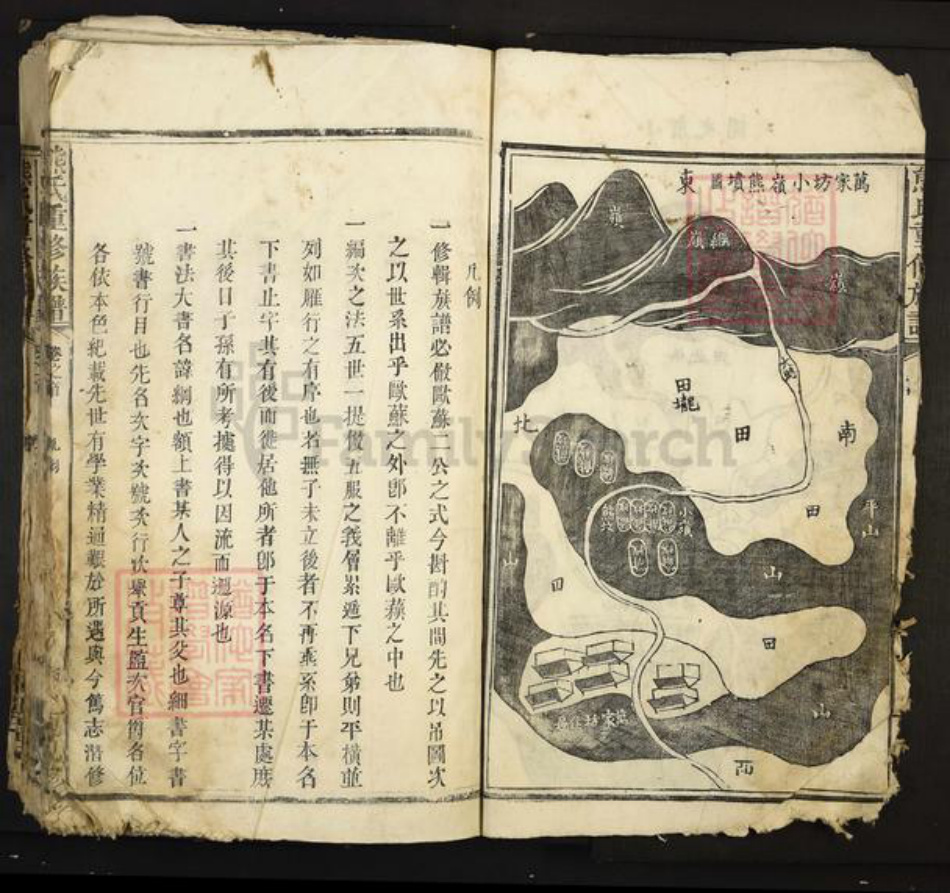 萬家坊小嶺熊墳圖
東
嶺
嶺
田壠
田
南
北
田
平山
小嶺
熊墳
山
山
田
田
山
萬家坊住居
西
熊氏重修族譜
凡例
一修輯族譜必倣歐蘇二公之式今斟酌其間先之以吊圖次
之以世系出乎歐蘇之外卽不離乎歐蘇之中也
一編次之法五世一提倣五服之義層累遞下兄弟則平橫並
列如雁行之有序也若無子未立後者不再乖系卽于本名
下書止字其有後而徙居他所者卽于本名下書遷某處庶
其後日子孫有所考據得以因流而遡源也
一書法大書名諱綱也額上書某人之子尊其父也細書字書
號書行目也先名次字次號次行次舉貢生監次官爵各位
各依本色紀載先世有學業精通艱於所遇與今篤志潛修
熊氏重修族譜
卷之首
凡例
FamilySearch